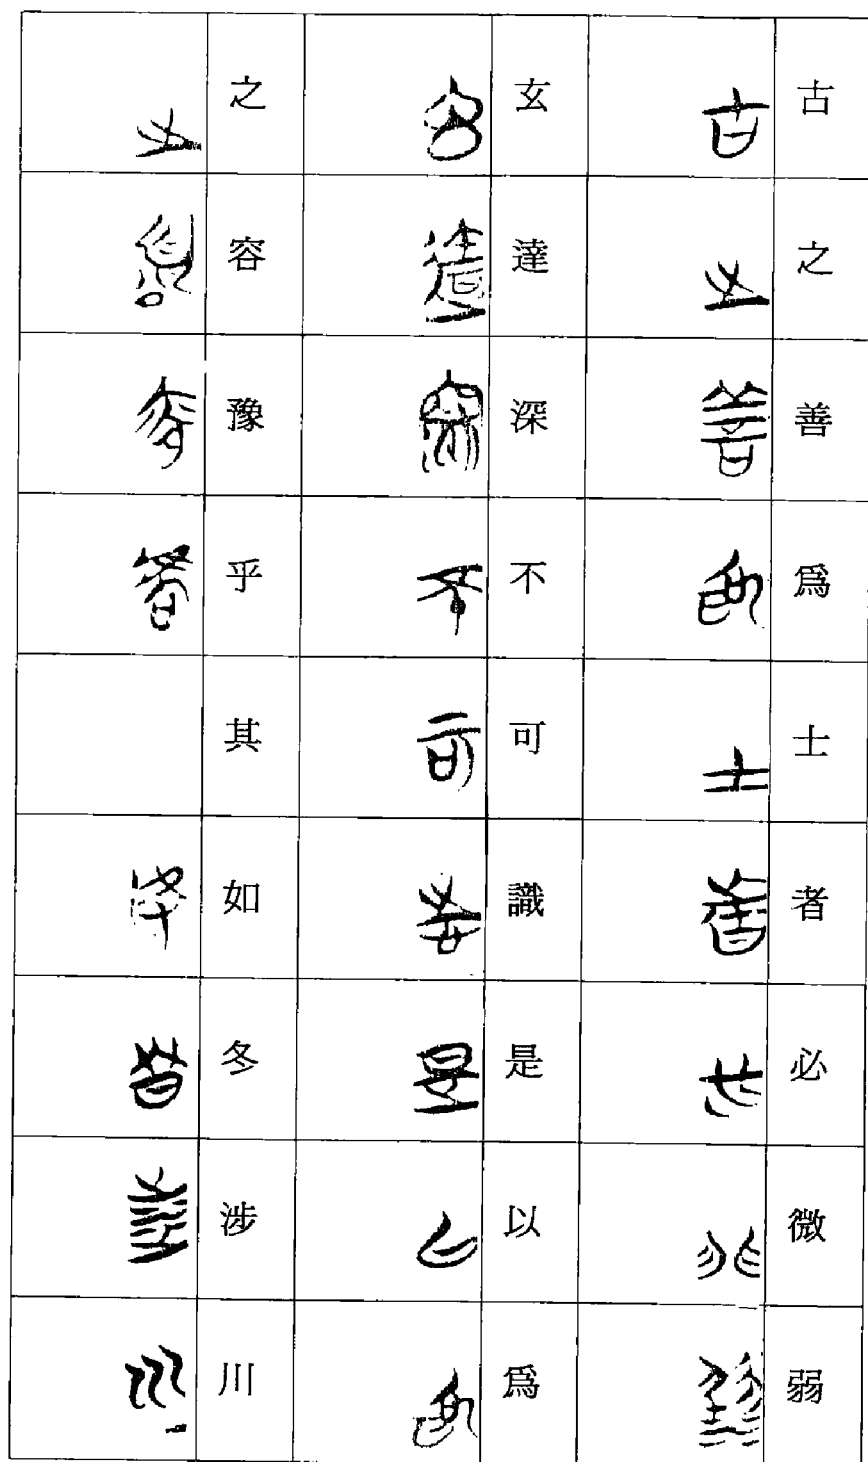 古之善爲士者必微弱
玄達深不可識是以爲
之容豫乎其如冬涉川